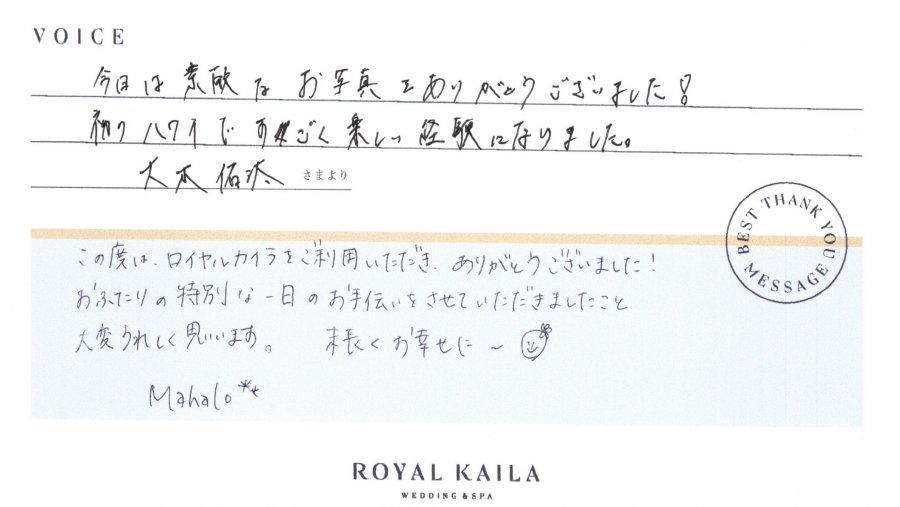 VOICE
今日は素敵なお写真をありがとうございました!
初ハワイですごく楽しい経験になりました。
大木佑汰 さまより
BEST THANK YOU MESSAGE
この度は、ロイヤルカイラをご利用いただき、ありがとうございました!
おふたりの特別な一日のお手伝いをさせていただきましたこと
大変うれしく思います。 末長くお幸せに〜
Mahalo**
ROYAL KAILA
WEDDING & SPA